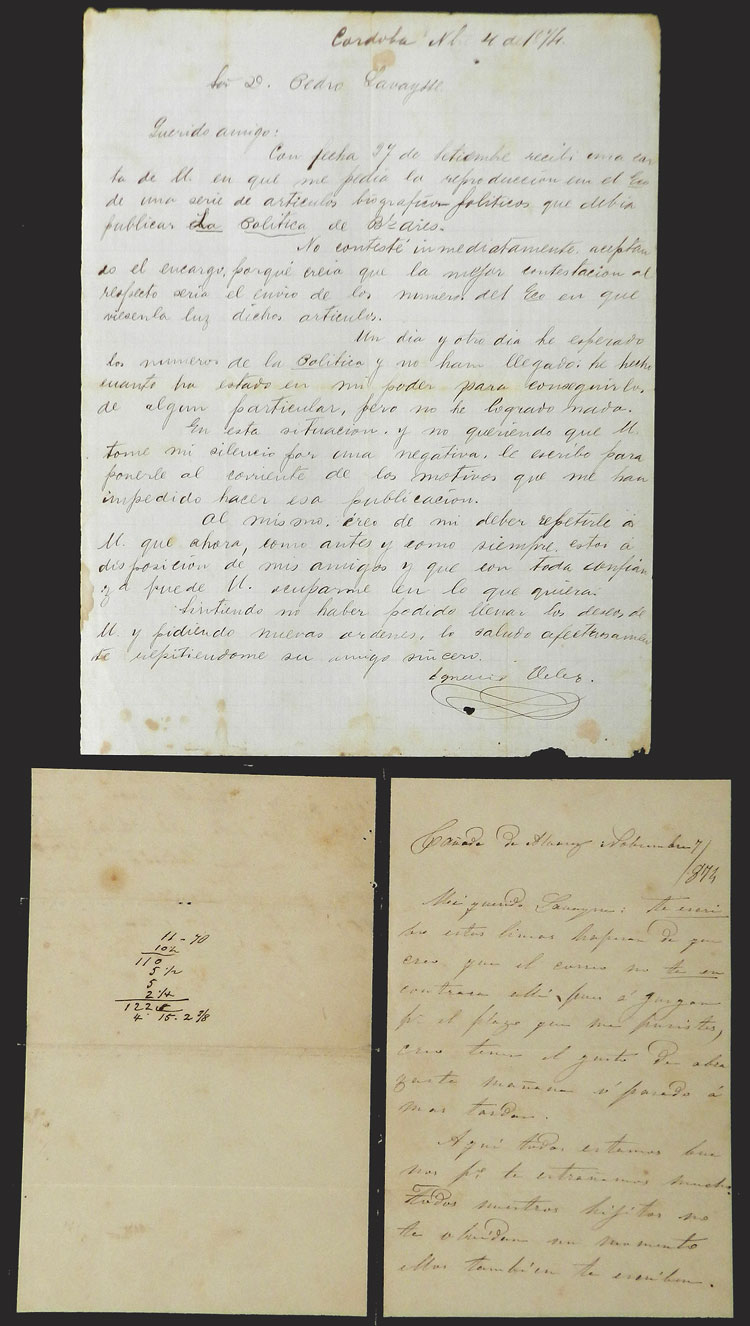 Cordoba Nbe 4 de 1874.
Sor D. Pedro Lavaysse
Querido amigo:
Con fecha 27 de Setiembre recibi una car
ta de U. en que me pedia la reproduccion en el Eco
de una serie de articulos biografico-politicos que debia
publicar La Politica de Bs Aires.
No contesté inmediatamente, aceptan
do el encargo, porqué creia que la mejor contestacion al
respecto seria el envio de los numeros del Eco en que
viesen la luz dichos articulos.
Un dia y otro dia he esperado
los numeros de la Politica y no han llegado: he hecho
cuanto ha estado en mi poder para conseguirlos
de algun particular, pero no he logrado nada.
En esta situacion, y no queriendo que U.
tome mi silencio por una negativa, le escribo para
ponerle al corriente de los motivos que me han
impedido hacer esa publicacion.
Al mismo, creo de mi deber repetirle á
U. que ahora, como antes y como siempre, estoi á
disposicion de mis amigos y que con toda confian
za puede U. ocuparme en lo que quiera.
Sintiendo no haber podido llenar los deseos de
U. y pidiendo nuevas ordenes, lo saludo afectuosamen
te repitiendome su amigo sincero.
Ignacio Velez.
11-70
102
110
5 1/2
5
2 1/4
122
4 15-2 7/8
Cañada de Alvarez Nobiembre 7/
/874
Mi querido Lavaysse: te escri
bo estas lineas
creo, que el correo no te en
contrara alli, pues á juzgar
pr el plazo que me pusistes,
creo tener el gusto de abra
zarte mañana ó pasado á
mas tardar.
Aqui todos estamos bue
nos pr te estrañamos mucho
Todos nuestros hijitos no
te olvidan un momento
ellos tambien te escriben.